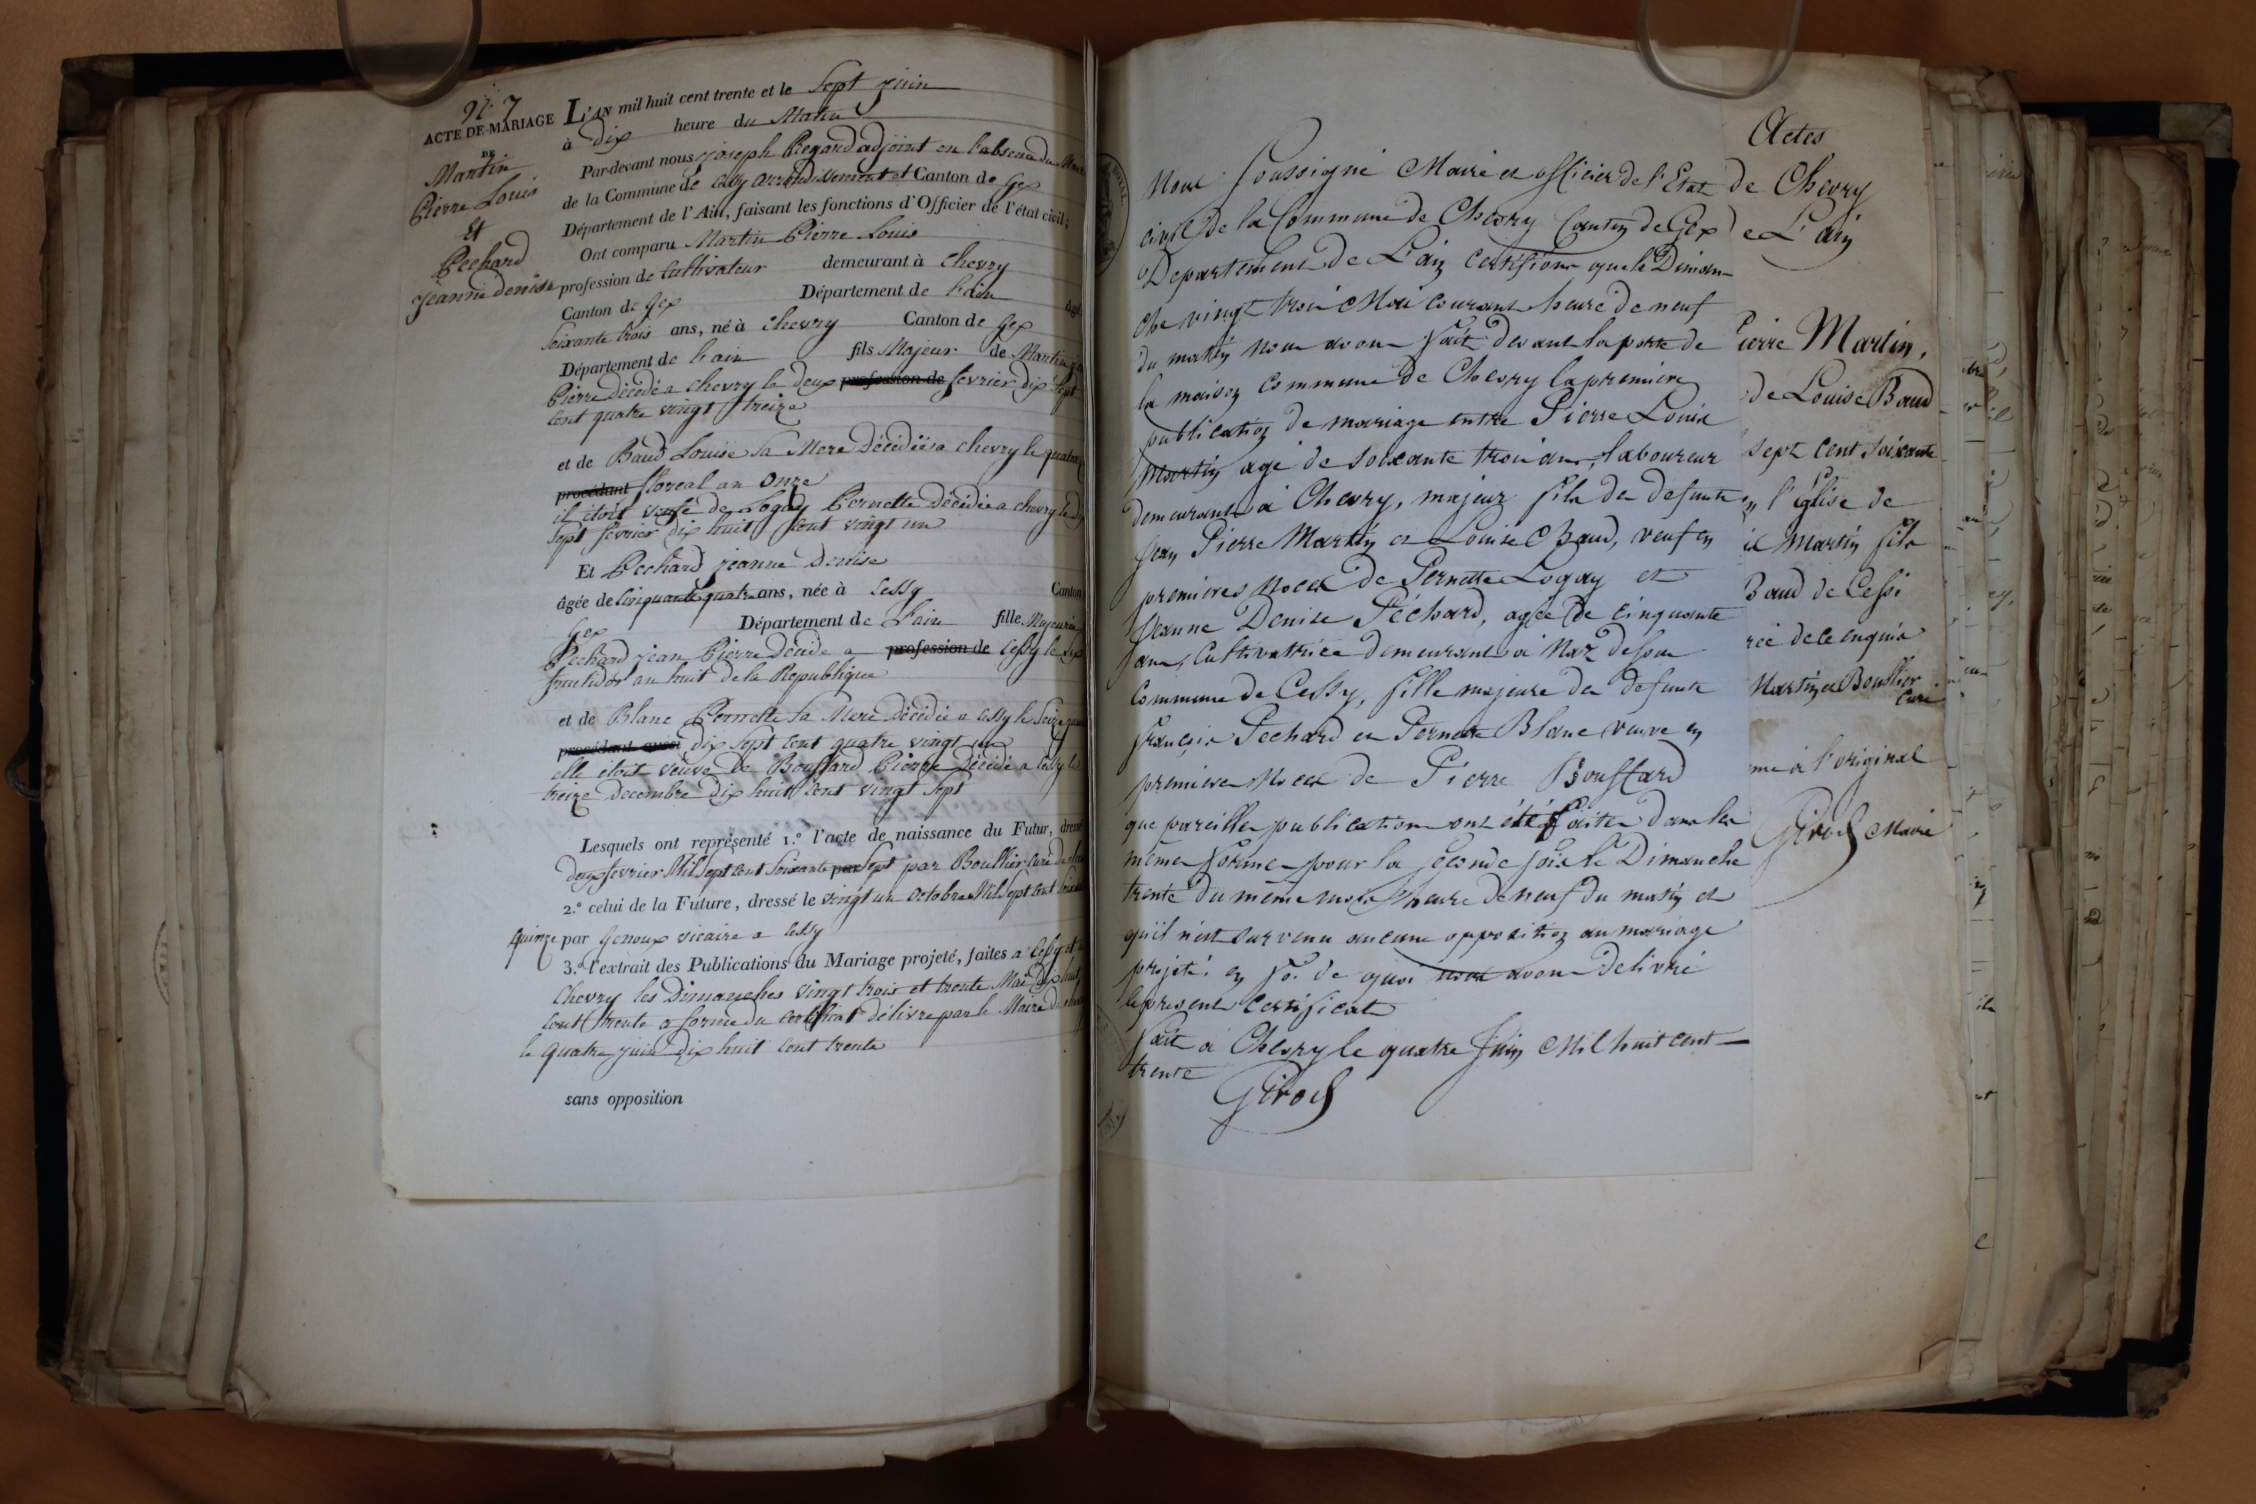 N.° 7
ACTE DE MARIAGE
DE
Martin
Pierre Louis
Et
Pechard
jeanne denise
L'AN mil huit cent trente et le Sept juin
à Dix heure du Matin
Par-devant nous joseph Regard adjoint en l'absence du
de la Commune de Cessy arrondissement et Canton de Gex
Département de l'Ain, faisant les fonctions d'Officier de l'état civil;
Ont comparu Martin Pierre Louis
profession de Cultivateur demeurant à Chevry
Canton de Gex Département de L'ain âgé
Soixante trois ans, né à Chevry Canton de Gex
Département de L'ain fils Majeur de Martin
Pierre décédé a chevry le deux profession de fevrier dix Sept
Cent quatre vingt treize
et de Baud Louise Sa Mere Décédée a chevry le
procédant floreal an Onze
il étoit veufe de Logay Pernette Décédée a chevry le
Sept fevrier dix huit Cent vingt un
Et Pechard jeanne Denise
âgée de Cinquante quatre ans, née à Cessy Canton
Gex Département de L'ain fille Majeure
Pechard jean Pierre Décédé a profession de Cessy le
fructidor an huit de la Republique
et de Blanc Pernette Sa Mere Décédée a Cessy le Seize
procédant aussi dix Sept Cent quatre vingt un
elle étoit veuve de Bouffard Pierre Décédé a Cessy le
treize Decembre dix huit Cent vingt Sept
Lesquels ont représenté 1.° l'acte de naissance du Futur, dressé
Deux fevrier Mil Sept Cent Soixante Sept par Boullier Curé
2.° celui de la Future, dressé le vingt un Octobre Mil Sept Cent
quinze par Genoux vicaire a Cessy
3.° l'extrait des Publications du Mariage projeté, faites a Cessy et
Chevry les Dimanches vingt trois et trente Mai Dix huit
Cent trente a forme du Certificat délivré par le Maire de
le quatre juin Dix huit Cent trente
sans opposition
Nous Soussigné Maire et officier de l'Etat
civil de la Commune de Chevry Canton de Gex
Departement de L'ain Certifions que le Diman
che vingt trois Mai courant heure de neuf
du matin nous avons fait devant la porte de
la maison Commune de Chevry la premiere
publication de mariage entre Pierre Louis
Martin agé de soixante trois ans, laboureur
demeurant à Chevry, majeur fils de defunts
Jean Pierre Martin et Louise Baud, veuf en
premieres noces de Pernette Logay et
Jeanne Denise Péchard, agée de cinquante
ans, Cultivatrice demeurant à Naz dessous
Commune de Cessy, fille majeure de defunts
François Pechard et Pernette Blanc veuve en
premieres noces de Pierre Bouffard
que pareilles publication ont été faites dans la
même forme pour la seconde fois le Dimanche
trente du même mois heure de neuf du matin et
qu'il n'est survenu aucune opposition au mariage
projeté. en foi de quoi nous avons Delivré
le present Certificat
Fait à Chevry le quatre Juin Mil huit cent
trente
Girod
Actes
de Chevry
de L'ain
Pierre Martin,
de Louise Baud
sept cent soixante
l'église de
Martin fils
Baud de Cessi
Martin et Boullier
Curé
à l'original
Girod Maire